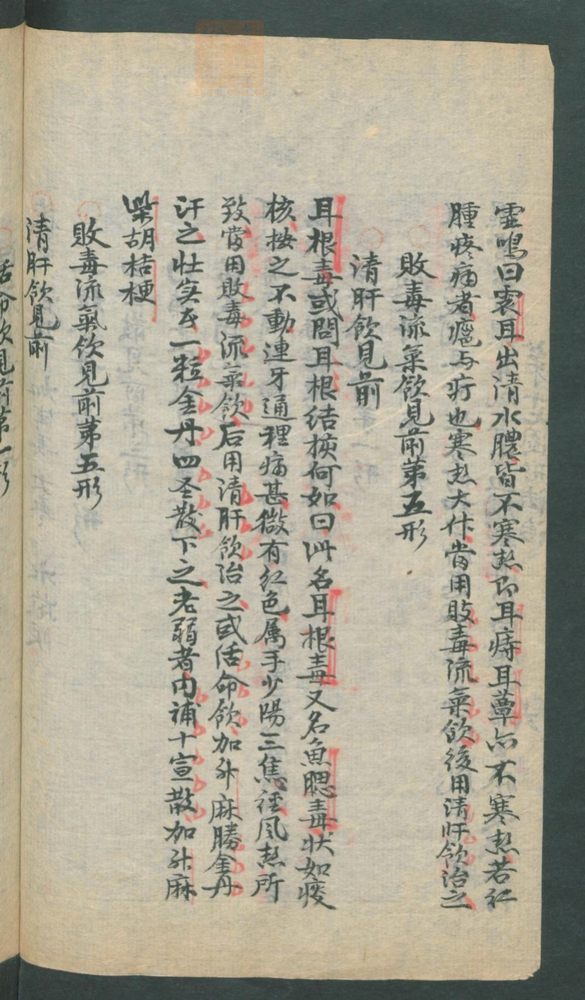 雷鳴曰裏耳出清水膿皆不寒热即耳痔耳蕈亦不寒热若红
腫疼痛者癰与疔也寒热大作當用敗毒流氣飲後用清肝飲治之
敗毒流氣飲見前第五形
清肝飲見前
耳根毒或問耳根结核何如曰此名耳根毒又名魚腮毒状如痰
核按之不動連牙通裡痛甚微有红色属手少陽三焦徑风热所
致當用敗毒流氣飲后用清肝飲治之或活命飲加升麻勝金丹
汗之壮实者一粒金丹四圣散下之老弱者内補十宣散加升麻
柴胡桔梗
敗毒流氣飲見前第五形
清肝飲見前
活命飲見前第一形